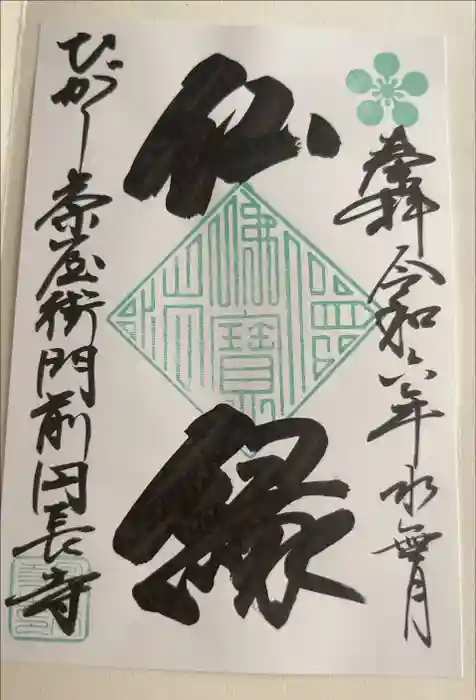 奉拝 令和六年水無月
仏縁
佛寶
ひがし茶屋街門前円長寺